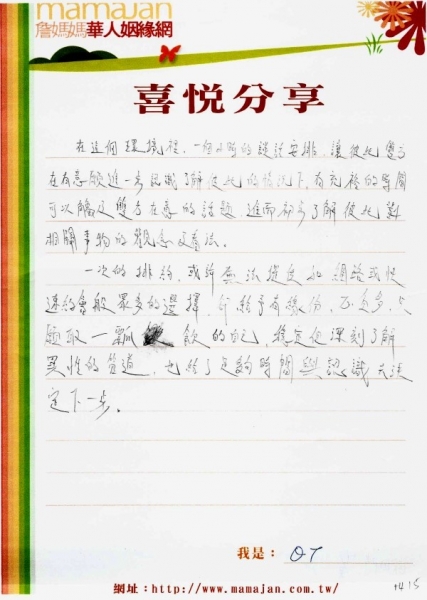 mamajan
詹媽媽華人姻緣網
喜悅分享
在這個環境裡，一個小時的談話安排，讓彼此雙方
在有意願進一步認識了解彼此的情況下，有充裕的時間
可以觸及雙方在意的話題，進而初步了解彼此對
相關事物的觀念及看法。
一次的排約，或許無法提及如網路或快
速約會般眾多的選擇，但給予有緣份，不貪多，只
願取一瓢飲的自己，穩定但深刻了解
異性的管道，也給了足夠時間與認識去決
定下一步。
我是： QT
網址：http://www.mamajan.com.tw/